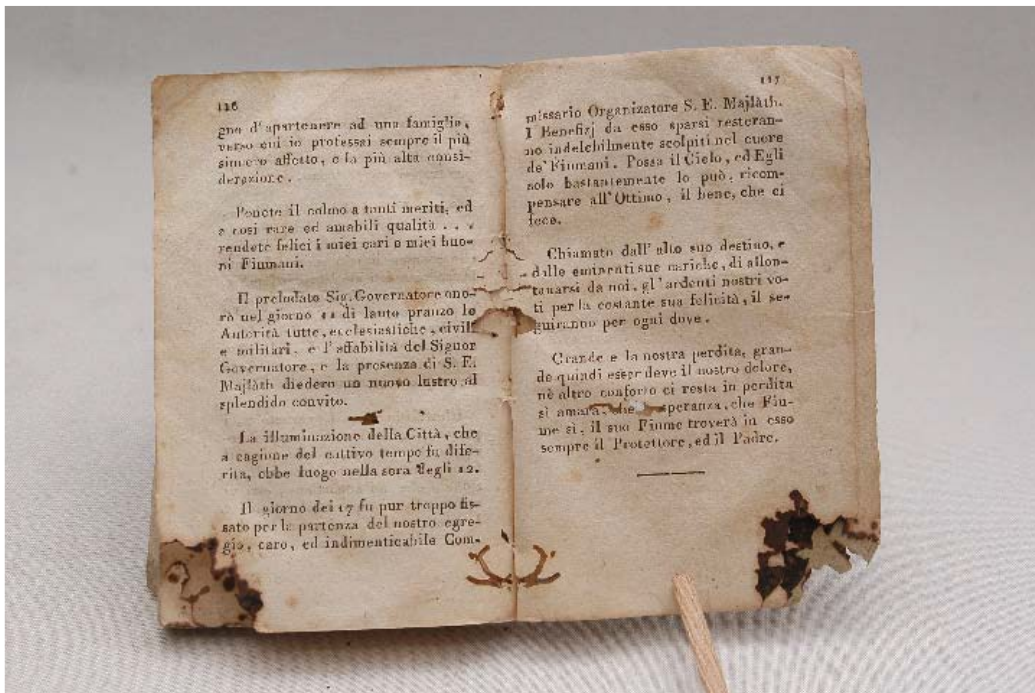 126
gno d'apartenere ad una famiglia,
verso cui io professai sempre il più
sincero affetto, e la più alta consi-
derazione.
Ponete il colmo a tanti meriti, ed
a così rare ed amabili qualità . . .
rendete felici i miei cari e miei buo-
ni Fiumani.
Il prelodato Sig. Governatore ono-
rò nel giorno 11 di lauto pranzo le
Autorità tutte, ecclesiastiche, civili
e militari, e l'affabilità del Signor
Governatore, e la presenza di S. E.
Majlàth diedero un nuovo lustro al
splendido convito.
La illuminazione della Città, che
a cagione del cattivo tempo fu dife-
rita, ebbe luogo nella sera degli 12.
Il giorno dei 17 fu pur troppo fis-
sato per la partenza del nostro egre-
gio, caro, ed indimenticabile Com-
127
missario Organizatore S. E. Majlàth.
I Benefizj da esso sparsi resteran-
no indelebilmente scolpiti nel cuore
de' Fiumani. Possa il Cielo, ed Egli
solo bastantemente lo può, ricom-
pensare all'Ottimo, il bene, che ci
fece.
Chiamato dall' alto suo destino, e
dalle eminenti sue cariche, di allon-
tanarsi da noi, gl'ardenti nostri vo-
ti per la costante sua felicità, il se-
guiranno per ogni dove.
Grande e la nostra perdita, gran-
de quindi esser deve il nostro dolore,
nè altro conforto ci resta in perdita
sì amara, che speranza, che Fiu-
me sì, il suo Fiume troverà in esso
sempre il Protettore, ed il Padre.